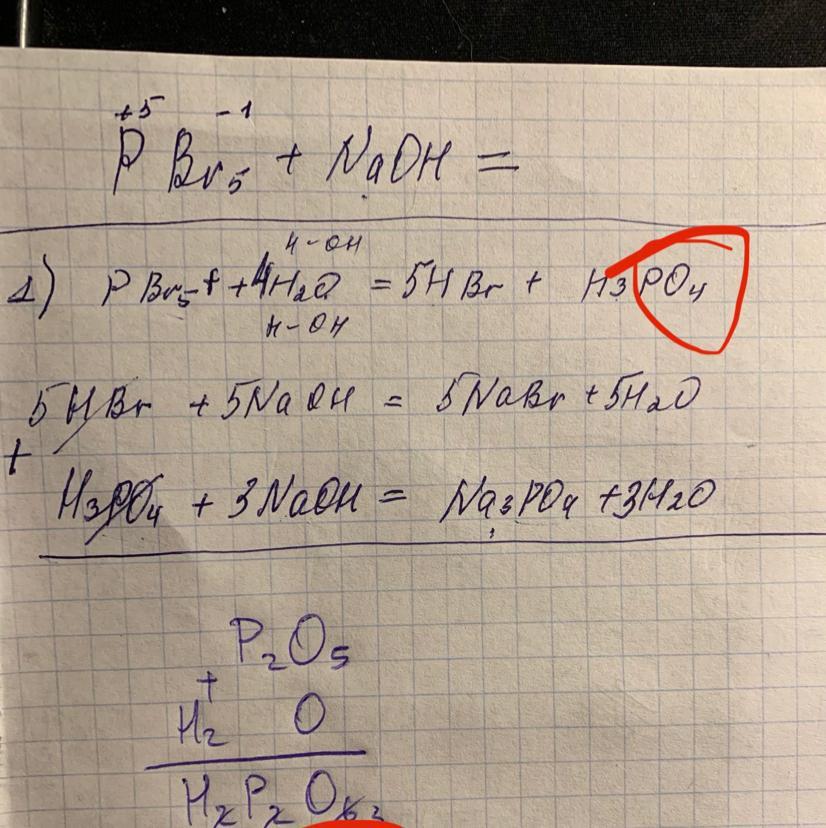 +5 -1
PBr5 + NaOH =
H-OH
1) PBr5 + 4H2O = 5HBr + H3PO4
H-OH
5HBr + 5NaOH = 5NaBr + 5H2O
+
H3PO4 + 3NaOH = Na3PO4 + 3H2O
P2O5
+
H2 O
H2P2O6 3